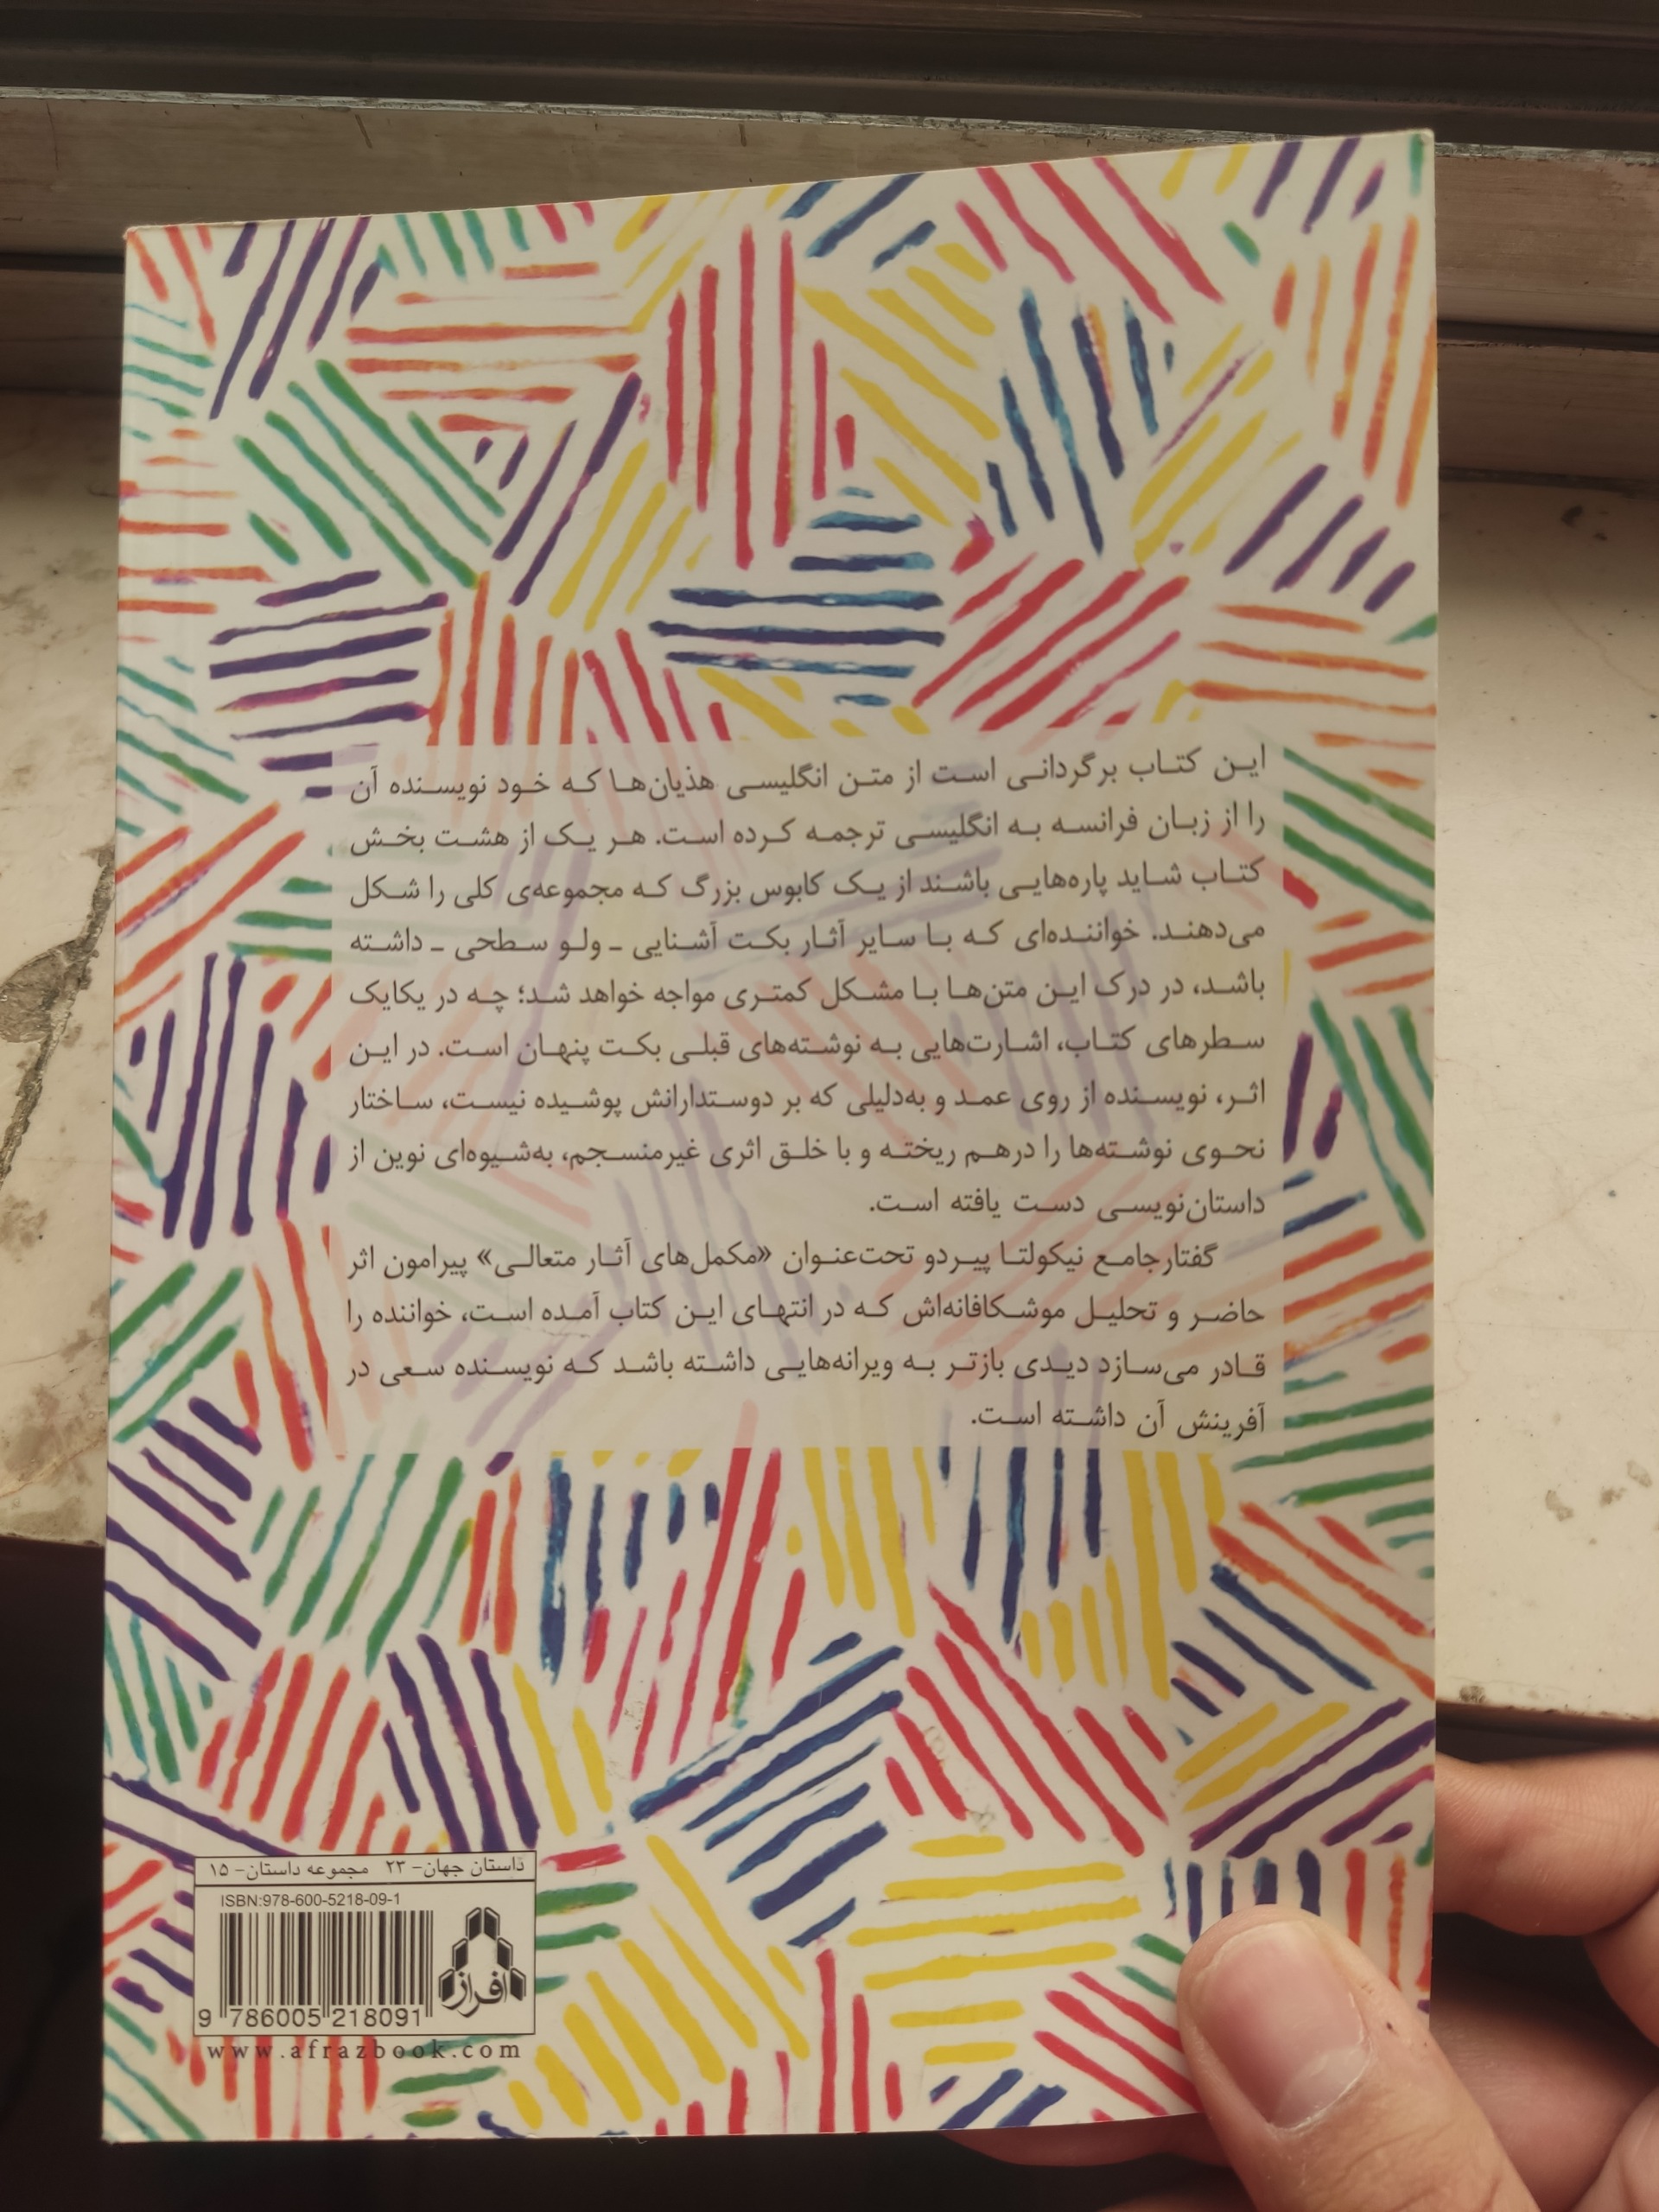 این کتاب برگردانی است از متن انگلیسی هذیان‌ها که خود نویسنده آن
را از زبان فرانسه به انگلیسی ترجمه کرده است. هر یک از هشت بخش
کتاب شاید پاره‌هایی باشند از یک کابوس بزرگ که مجموعه‌ی کلی را شکل
می‌دهند. خواننده‌ای که با سایر آثار بکت آشنایی ـ ولو سطحی ـ داشته
باشد، در درک این متن‌ها با مشکل کمتری مواجه خواهد شد؛ چه در یکایک
سطرهای کتاب، اشارت‌هایی به نوشته‌های قبلی بکت پنهان است. در این
اثر، نویسنده از روی عمد و به‌دلیلی که بر دوستدارانش پوشیده نیست، ساختار
نحوی نوشته‌ها را درهم ریخته و با خلق اثری غیرمنسجم، به‌شیوه‌ای نوین از
داستان‌نویسی دست یافته است.
گفتارجامع نیکولتا پیردو تحت‌عنوان «مکمل‌های آثار متعالی» پیرامون اثر
حاضر و تحلیل موشکافانه‌اش که در انتهای این کتاب آمده است، خواننده را
قادر می‌سازد دیدی بازتر به ویرانه‌هایی داشته باشد که نویسنده سعی در
آفرینش آن داشته است.
داستان جهان- ۲۳ مجموعه داستان- ۱۵
ISBN:978-600-5218-09-1
افراز
9 786005 218091
www.afrazbook.com